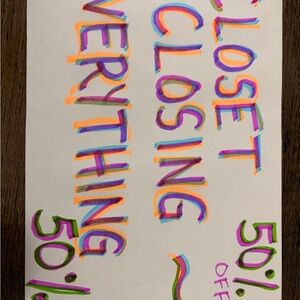 CLOSET
CLOSING
VERYTHING
50%
OFF
50%